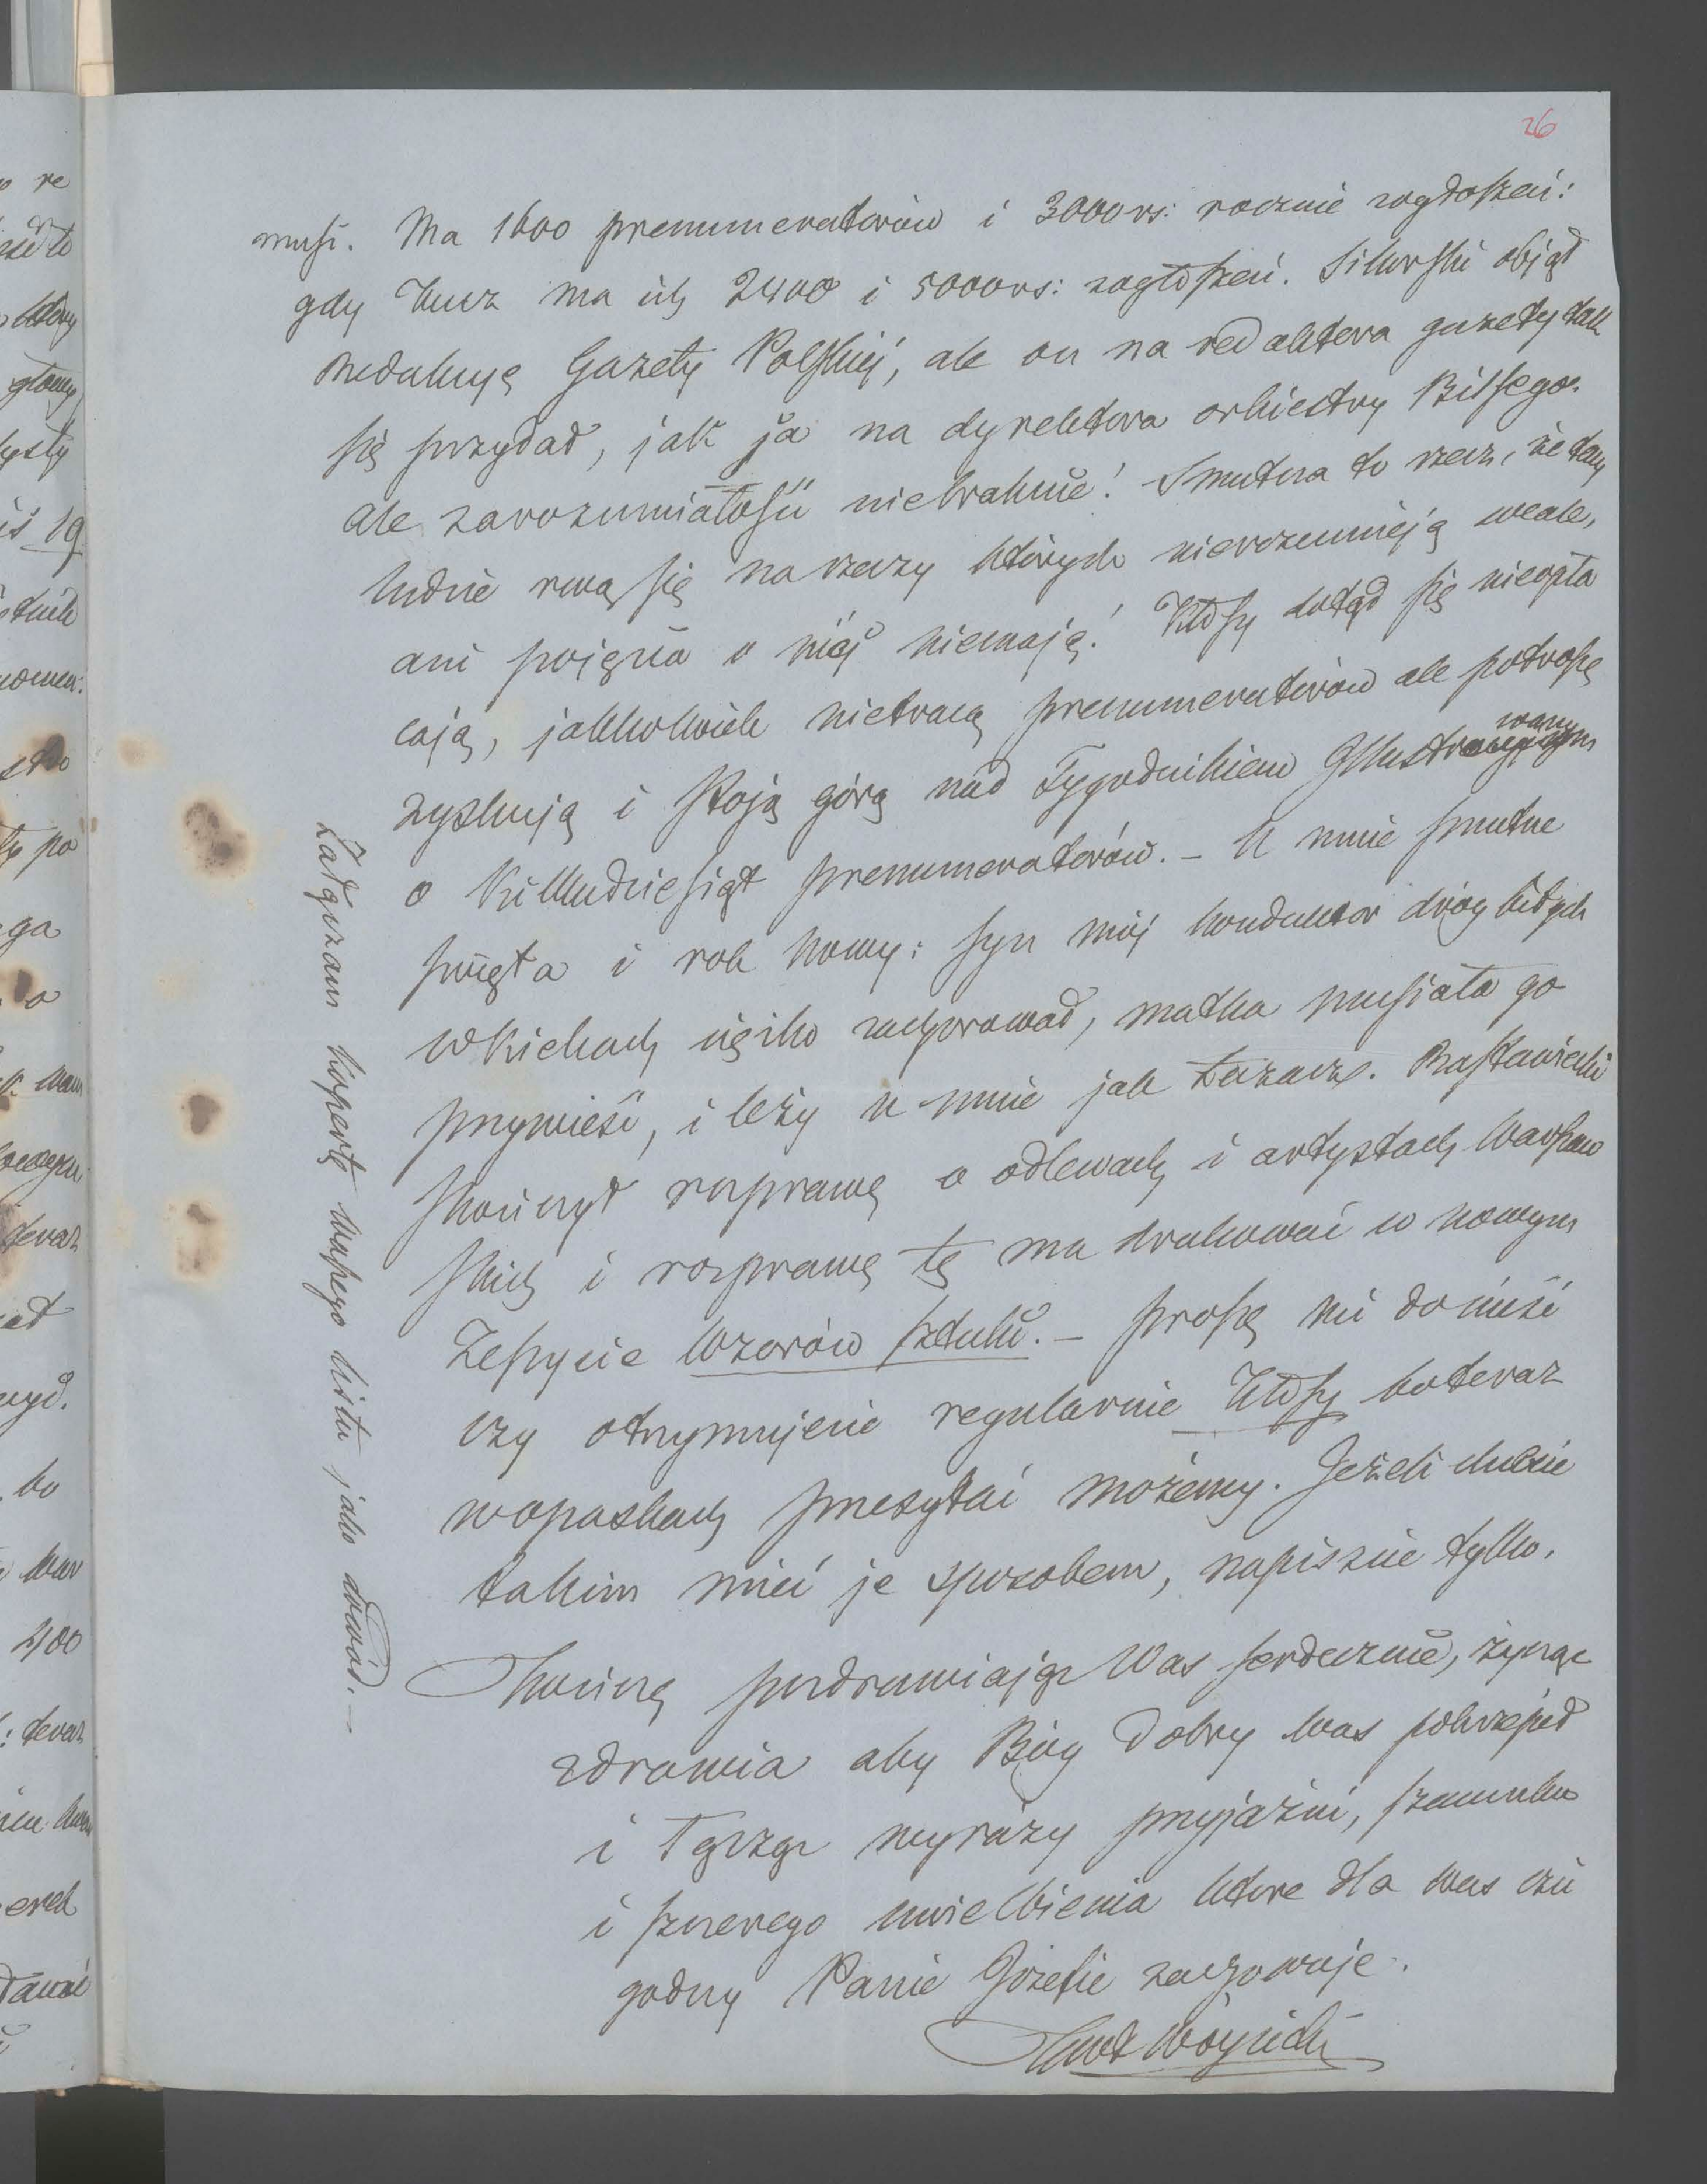 26
musi. Ma 1600 prenumeratorów i 3000 rs: rocznie zogłoszeń:
gdy Kucz ma ich 2400 i 5000 rs: zogłoszeń. Sikorski objął
Redakcyę Gazety Polskiéj, ale on na redaktora gazety tak
się przydał, jak ja na dyrektora orkiestry Bilsego.
ale zarozumiałości niebraknie! Smutna to rzecz, że tacy
ludzie rwą się na rzeczy których nierozumieją wcale,
ani pojęcia o niéj niemają! Kłosy dotąd się nieopła
cają, jakkolwiek nietracą prenumeratorów ale potroszę
zyskują i stoją górą nad Tygodnikiem Illustrowanym
o kilkudziesiąt prenumeratorów. – U mnie smutne
święta i rok nowy: syn mój konduktor dróg bitych
w Kielcach ciężko zachorował, matka musiała go
przywieść, i leży u mnie jak Łazarz. Rastawiecki
skończył rozprawę o odlewach i artystach Warszaw
skich i rozprawę tę ma drukować w nowym
Zeszycie Wzorów sztuki. – Proszę mi donieść
czy otrzymujecie regularnie Kłosy bo teraz
wopaskach przesyłać możemy. Jeżeli chcecie
takim mieć je sposobem, napiszcie tylko.
Skończę pozdrawiając Was serdecznie, życząc
zdrowia aby Bóg dobry Was pokrzepił
i łącząc wyrazy przyjaźni, szacunku
i szczerego uwielbienia które dla Was czci
godny Panie Józefie zachowuję.
KWł Wójcicki
Załączam kopertę Waszego listu jako dowód. –